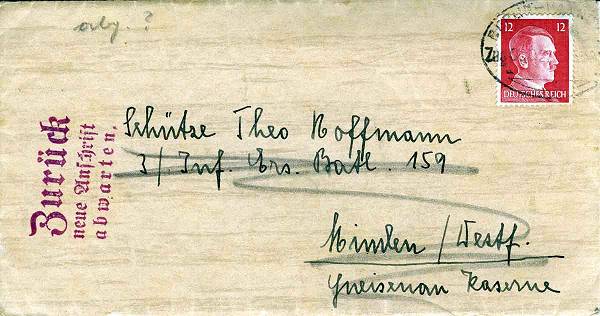 12 12
DEUTSCHES REICH
BERLIN
Zurück
neue Anschrift
abwarten.
Schütze Theo Hoffmann
3/ Inf. Ers. Batl. 159
Minden / Westf.
Gneisenau Kaserne